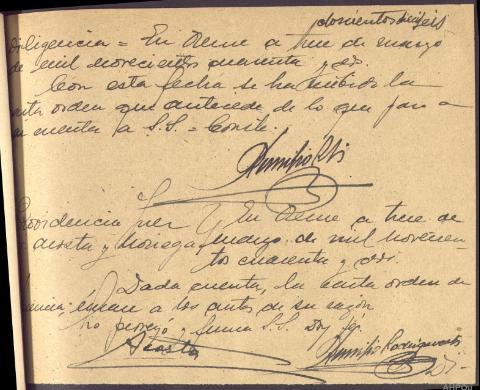 doscientos diez y seis
Diligencia = En Orense a trece de marzo
de mil novecientos cuarenta y dos.
Con esta fecha se ha recibido la
carta orden que antecede de lo que paso a
dar cuenta a S.S. = Conste.
Providencia Juez En Orense a trece de
Acosta y Noriega marzo de mil novecien-
tos cuarenta y dos.
Dada cuenta, la carta orden de
únase a los autos de su razón
Lo proveyó y firma S.S. Doy fe.
Acosta
AHPOu